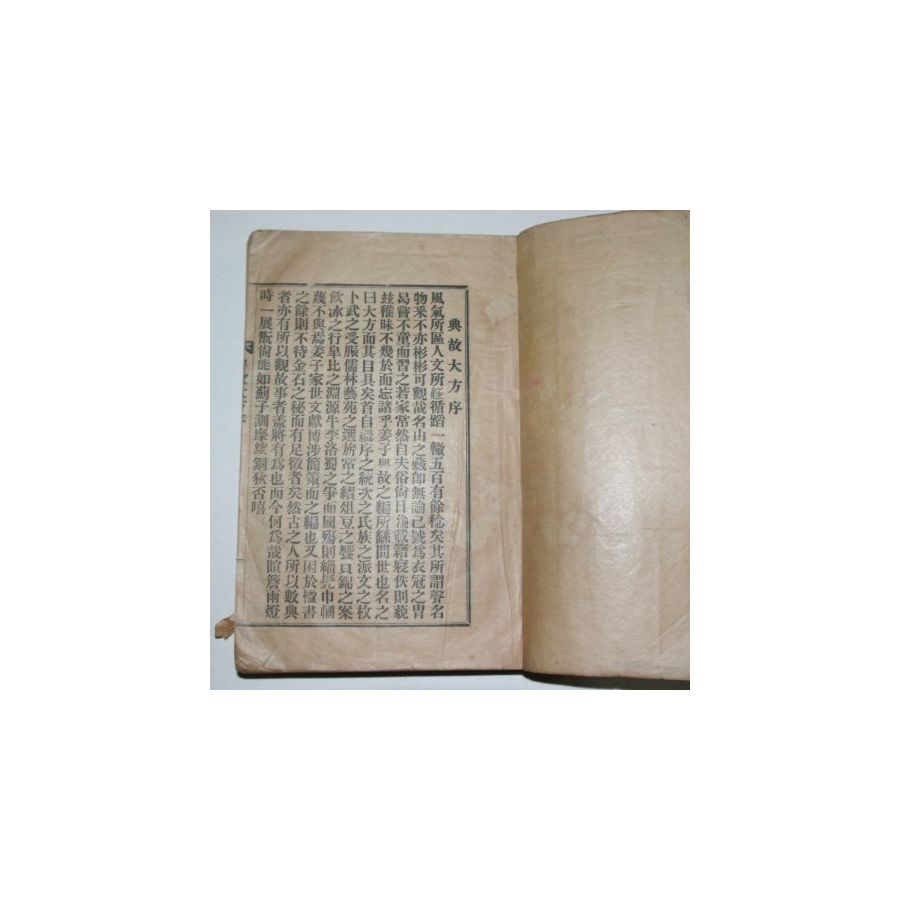 典故大方序
風氣所區人文所趍循蹈一轍五百有餘稔矣其所謂聲名
物采不亦彬彬可觀哉名山之藏卽無論已號爲衣冠之冑
曷嘗不童而習之若家常然自夫俗尙日渝載籍寢佚則藐
玆稚昧不幾於而忘諸乎姜子典故之編所繇問世也名之
曰大方而其目具矣首自繼序之統次之氏族之派文之枚
卜武之受脤儒林藝苑之選旂常之績俎豆之饗貝錦之案
飮冰之行皐比之淵源牛李洛蜀之爭而國殤則緇髡巾幗
蔑不與焉姜子家世文獻博涉簡策而之編也又困於楹書
之餘則不待金石之秘而有足徵者矣然古之人所以數典
者亦有所以觀故事者盖將有爲也而今何爲哉暄簷雨燈
時一展翫尙能如薊子訓摩挲銅狄否嘻